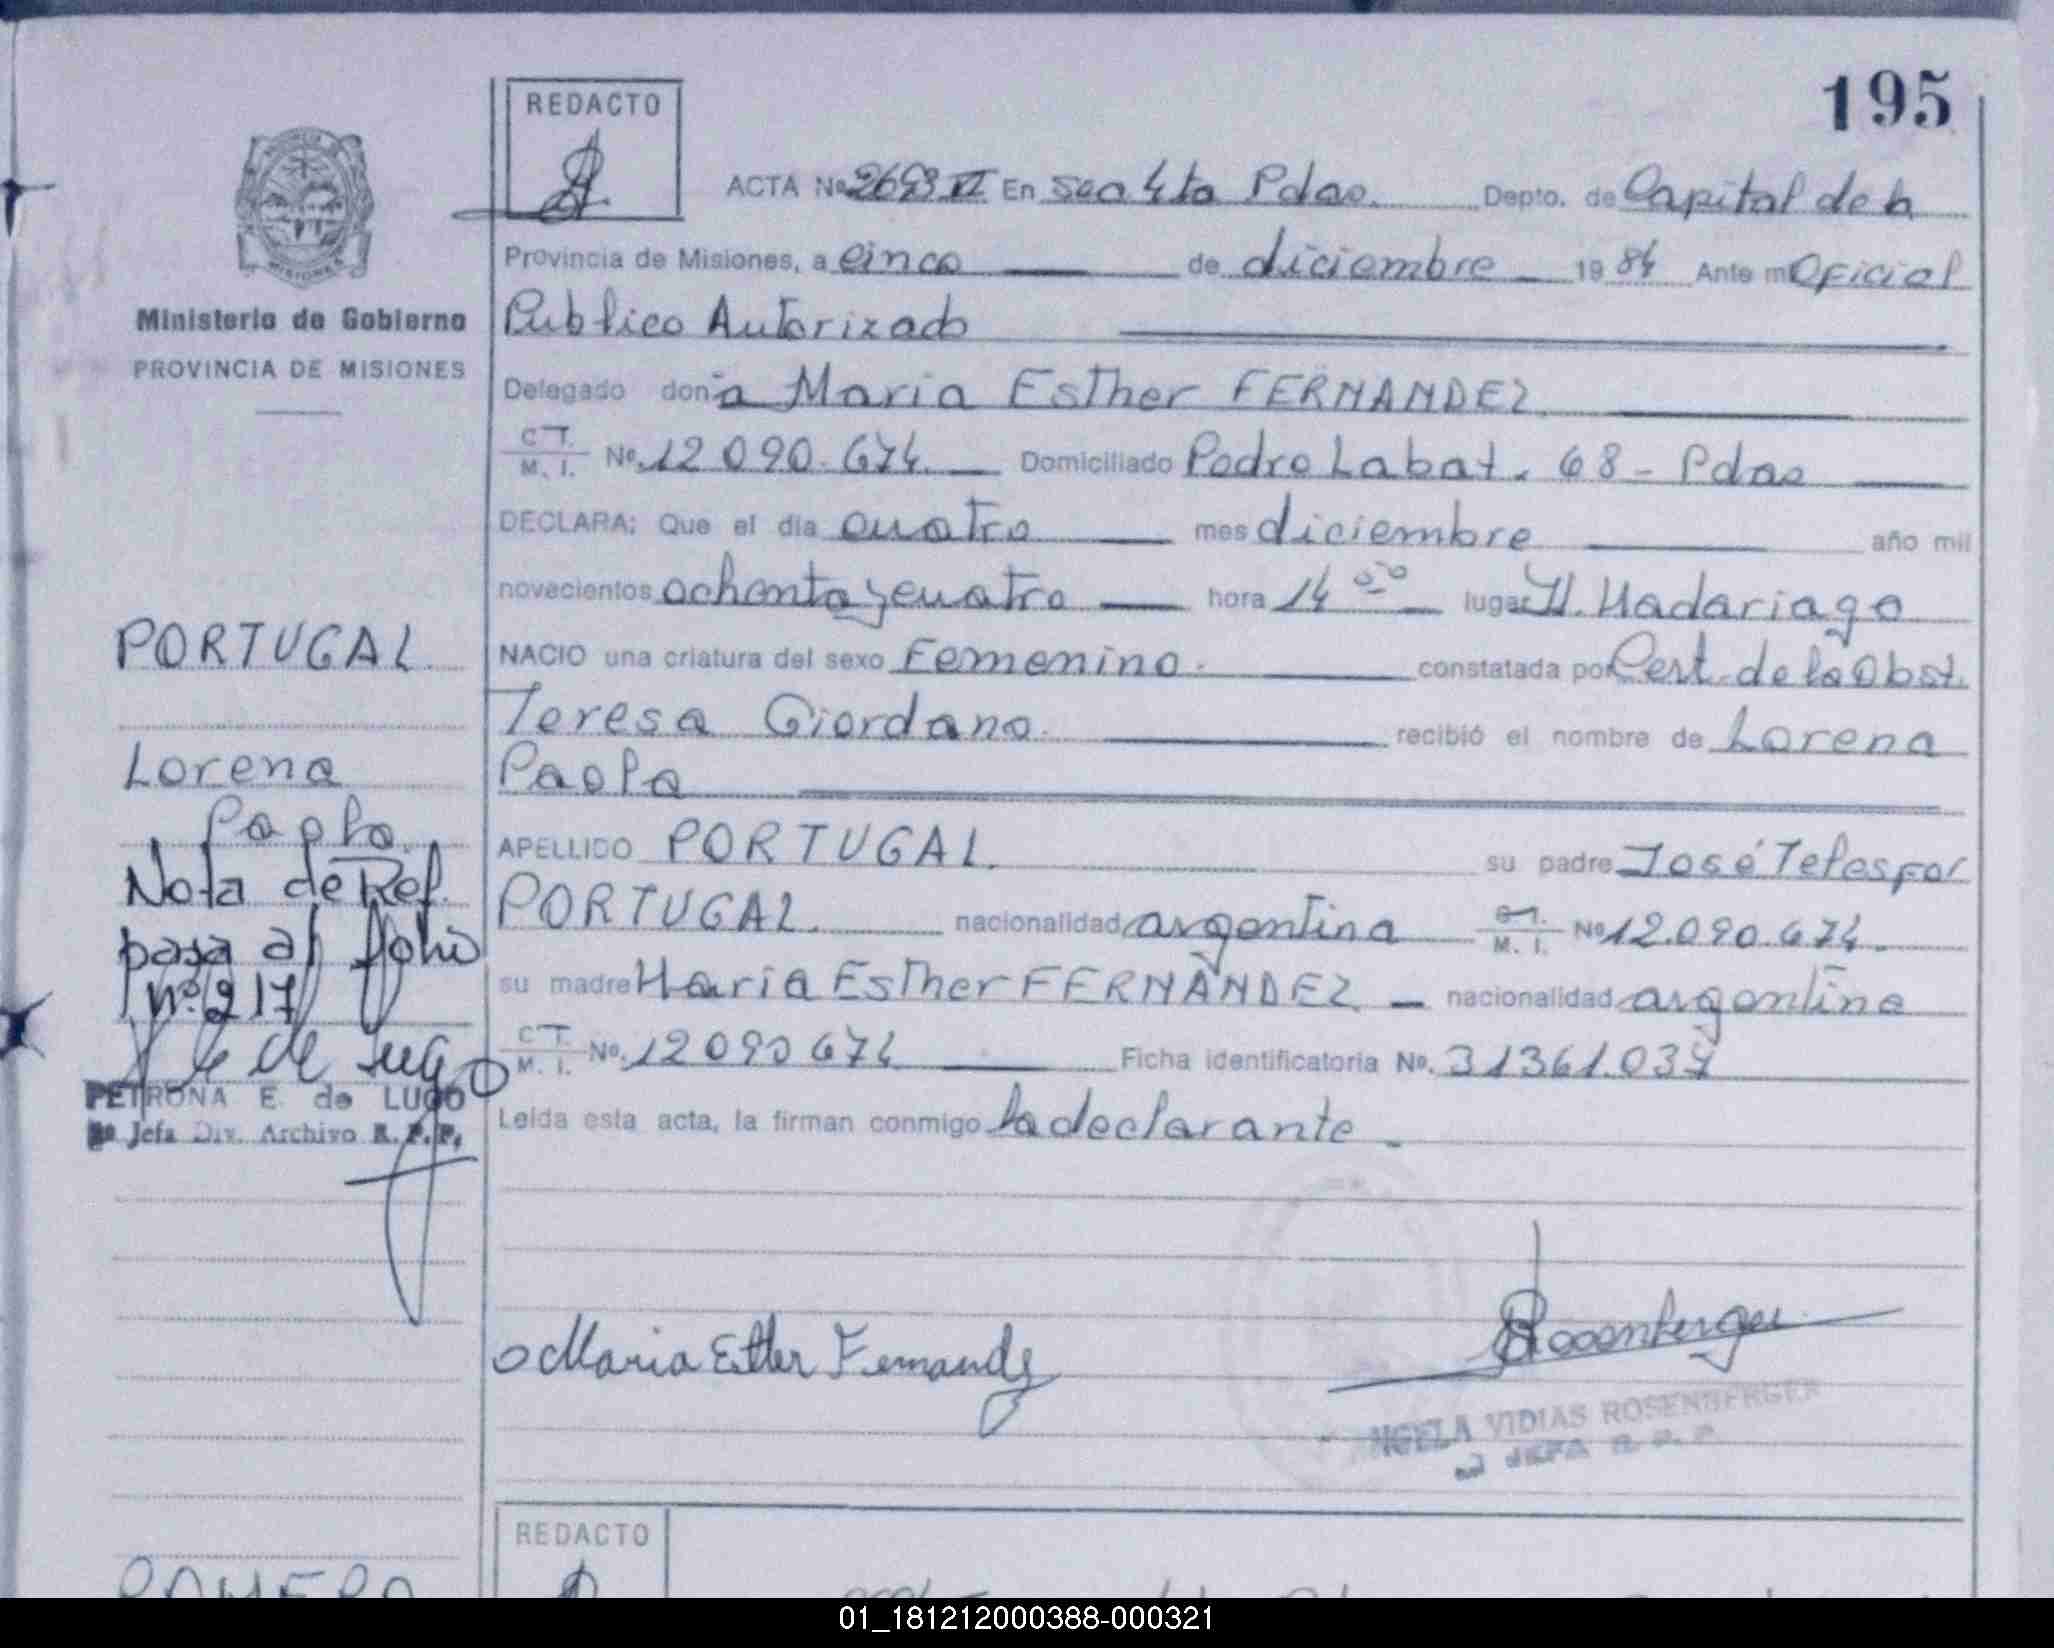 195
REDACTO
ACTA Nº 2693 VI En secc 4ta Pdas. Depto. de Capital de la
Provincia de Misiones, a cinco de diciembre 19 84 Ante mi Oficial
Publico Autorizado
Delegado don ña Maria Esther FERNANDEZ
C.I.
M. I. Nº. 12 090. 674. Domiciliado Pedro Labat. 68 - Pdas
DECLARA: Que el día cuatro mes diciembre año mil
novecientos ochenta y cuatro hora 14 00 lugar H. Madariaga
NACIO una criatura del sexo Femenino. constatada por Cert. de la Obst.
Teresa Giordano. recibió el nombre de Lorena
Paola
APELLIDO PORTUGAL. su padre José Telesfor
PORTUGAL. nacionalidad argentina
M. I. Nº 12.090.674.
su madre Maria Esther FERNANDEZ nacionalidad argentina
C.I.
M. I. Nº. 12 090 674 Ficha identificatoria Nº. 31361.037
Leída esta acta, la firman conmigo la declarante.
Maria Esther Fernandez
Rosenberger
ANGELA VIDIAS ROSENBERGER
JEFA R. P. P.
MISIONES
Ministerio de Gobierno
PROVINCIA DE MISIONES
PORTUGAL.
Lorena
Paola.
Nota de Ref.
pasa al folio
Nº. 217
E de Lugo
PETRONA E. de LUGO
Jefa Div. Archivo R. P. P.
REDACTO
ROMERO
01_181212000388-000321